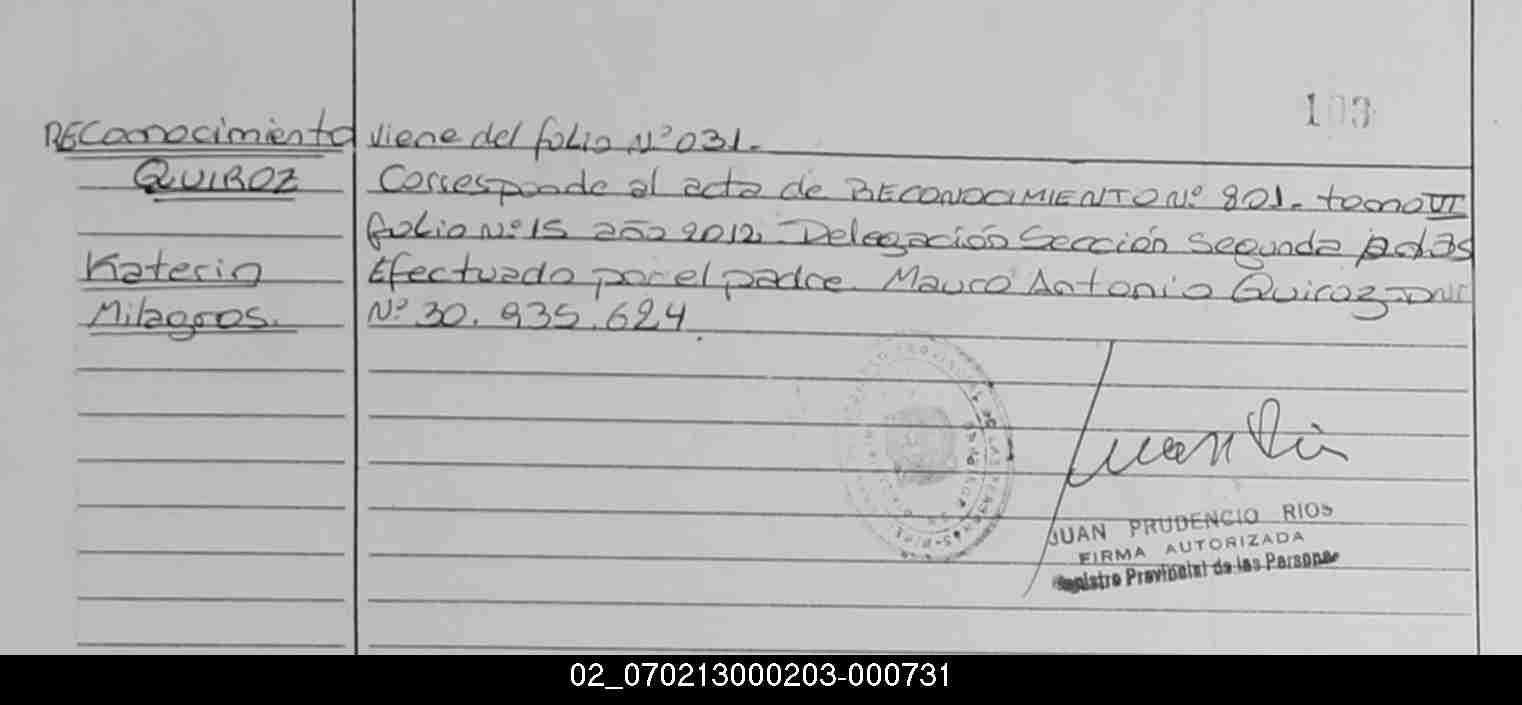 103
RECONOCIMIENTO viene del folio Nº 031.
QUIROZ Corresponde al acta de RECONOCIMIENTO Nº 801. tomo VI
folio Nº 15 año 2012. Delegación Sección Segunda
Katerin Efectuado por el padre Mauro Antonio Quiroz DNI
Milagros. Nº 30.935.624.
JUAN PRUDENCIO RIOS
FIRMA AUTORIZADA
Registro Provincial de las Personas
02_070213000203-000731